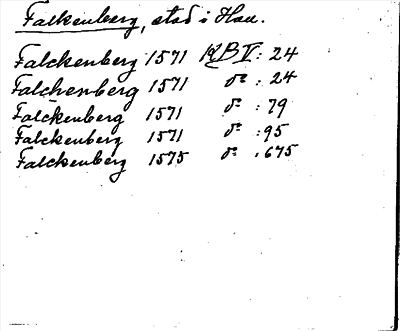 Falkenberg, stad i Hall.
Falckenberg 1571 KB V: 24
Falchenberg 1571 do : 24
Falckenberg 1571 do : 79
Falckenberg 1571 do : 95
Falckenberg 1575 do : 675